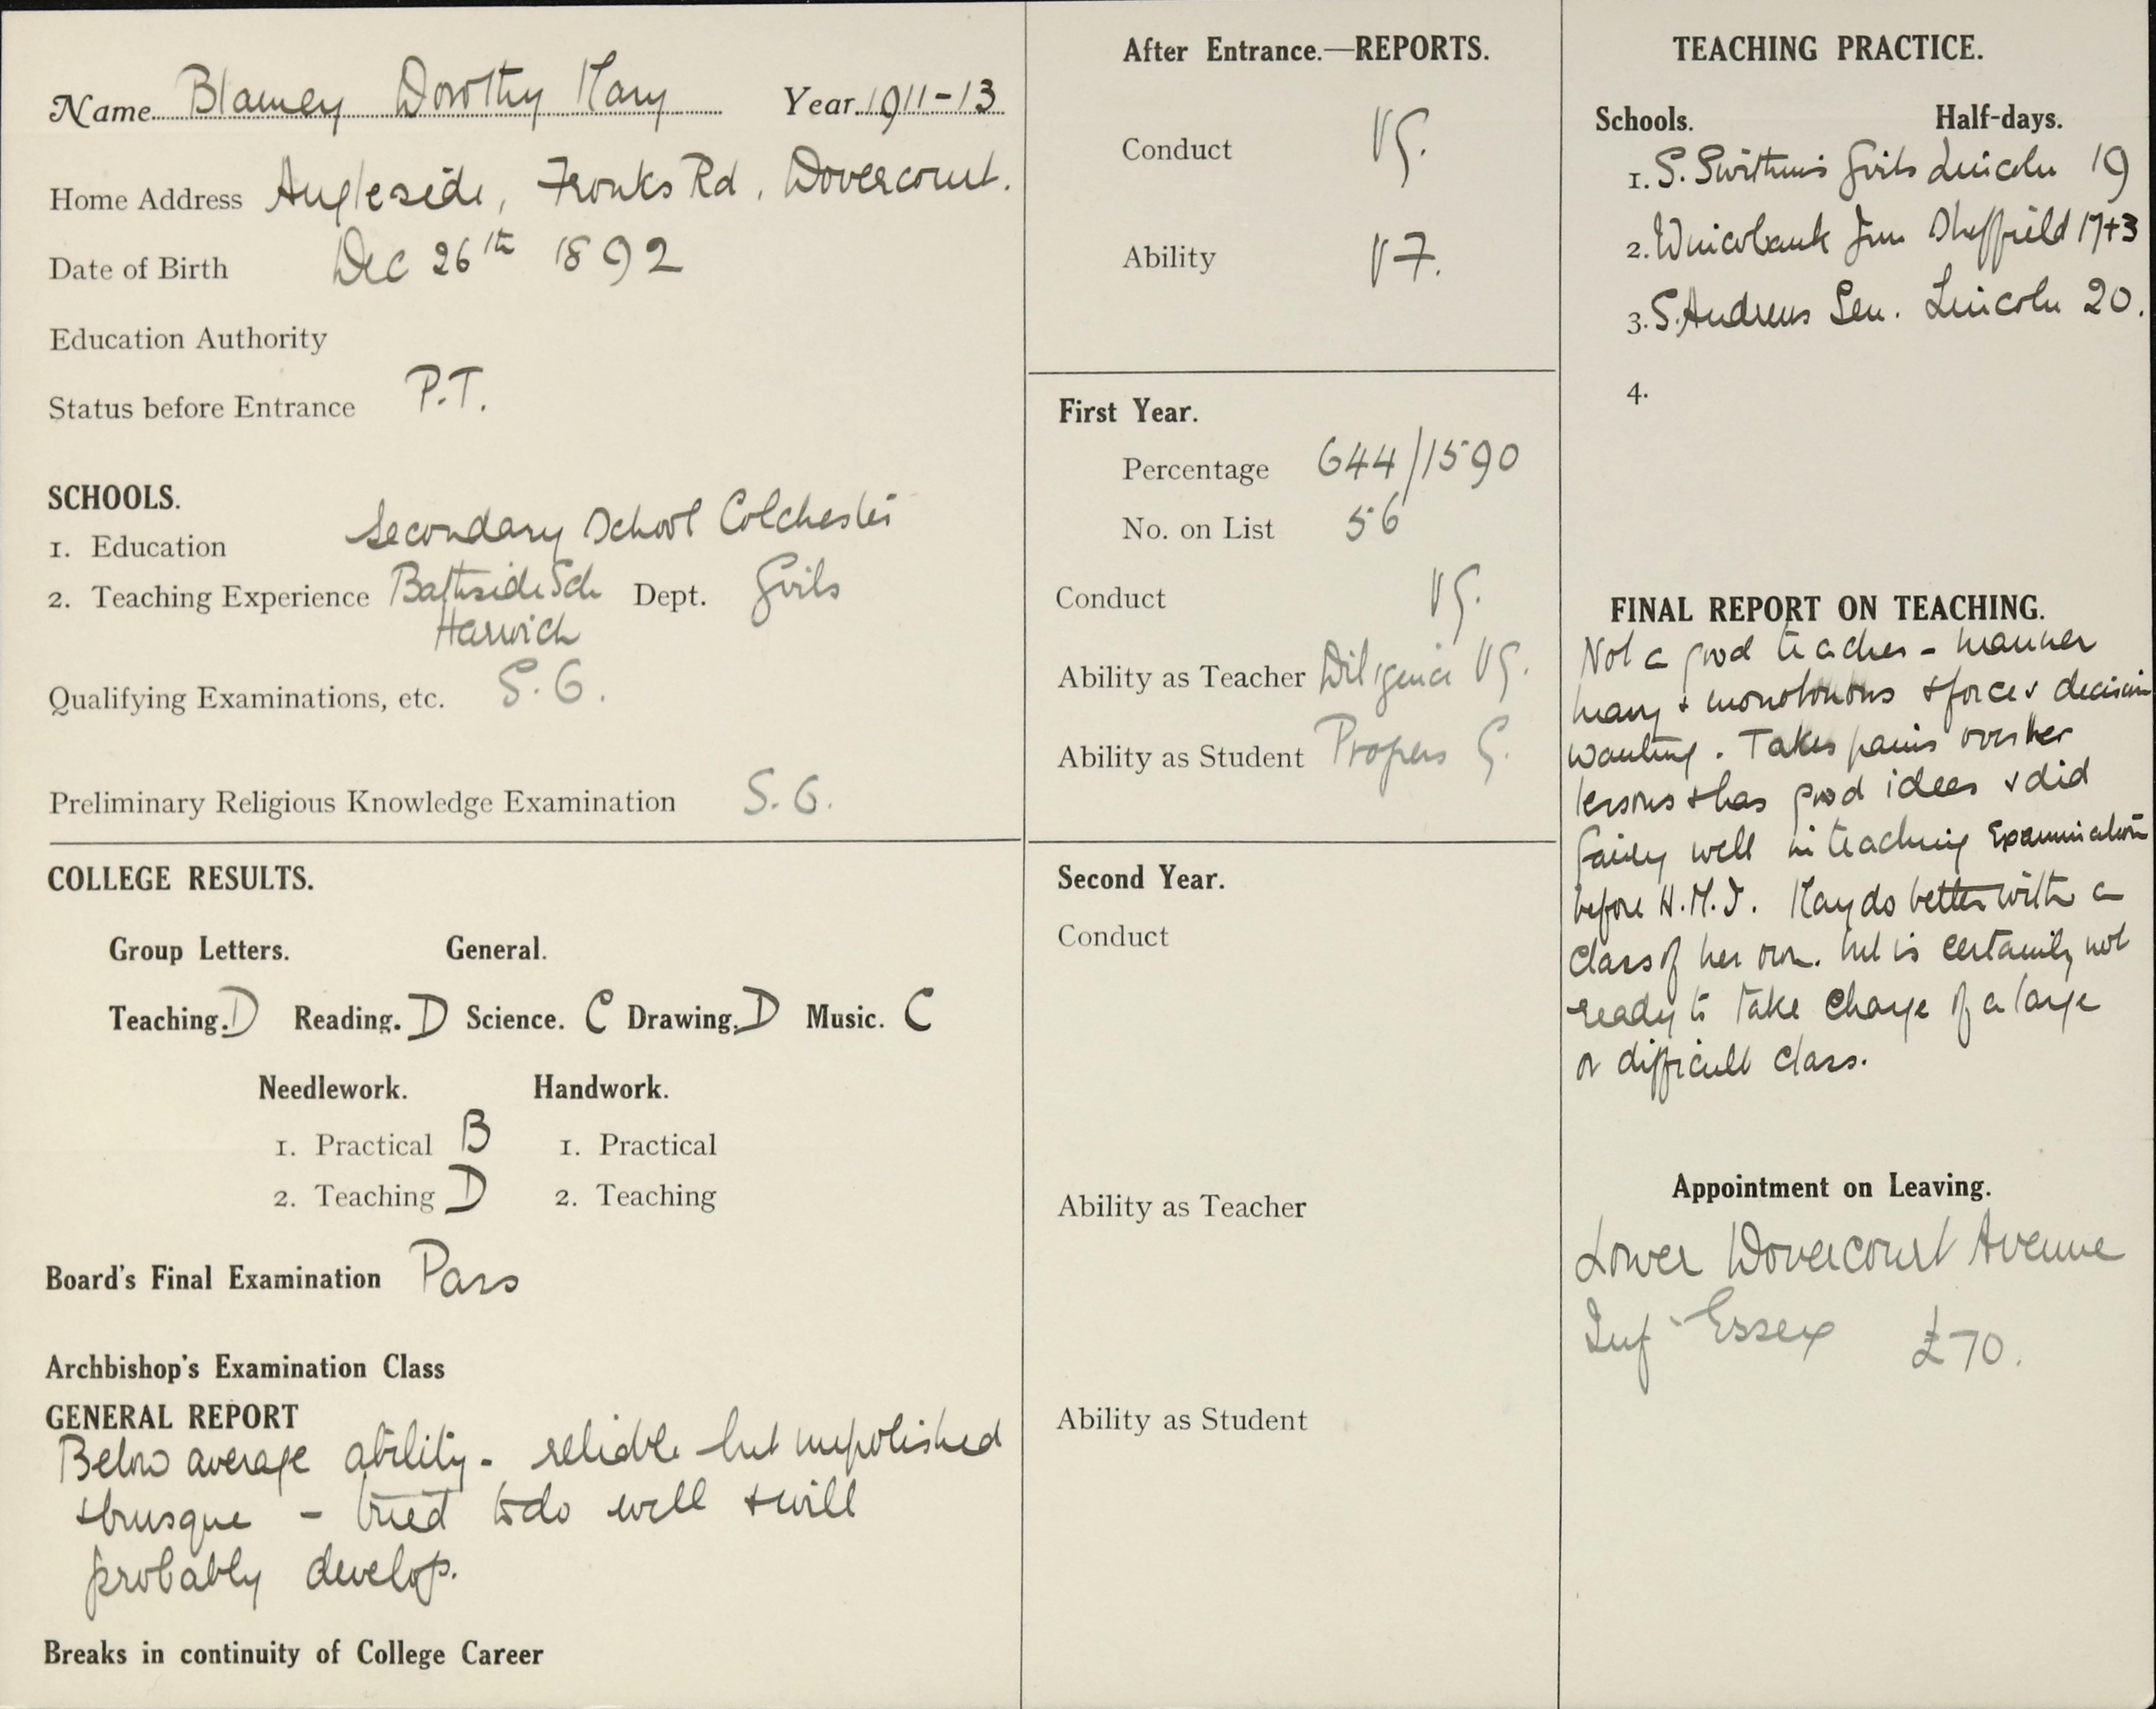 Name Blamey Dorothy Mary Year 1911-13
Home Address Angleside, Fronks Rd, Dovercourt.
Date of Birth Dec 26th 1892
Education Authority
Status before Entrance P.T.
SCHOOLS.
1. Education Secondary School Colchester
2. Teaching Experience Bathside Sch Dept. Girls
Harwich
Qualifying Examinations, etc. S.G.
Preliminary Religious Knowledge Examination S.G.
COLLEGE RESULTS.
Group Letters. General.
Teaching. D Reading. D Science. C Drawing. D Music. C
Needlework. Handwork.
1. Practical B 1. Practical
2. Teaching D 2. Teaching
Board's Final Examination Pass
Archbishop's Examination Class
GENERAL REPORT
Below average ability - reliable but unpolished
+ brusque - tried to do well + will
probably develop.
Breaks in continuity of College Career
After Entrance.—REPORTS.
Conduct VG.
Ability VF.
First Year.
Percentage 644/1590
No. on List 56
Conduct VG.
Ability as Teacher Diligence VG.
Ability as Student Progress G.
Second Year.
Conduct
Ability as Teacher
Ability as Student
TEACHING PRACTICE.
Schools. Half-days.
1. S. Swithins Girls Lincoln 19
2. Wincobank Jun Sheffield 17+3
3. S. Andrews Sen. Lincoln 20.
4.
FINAL REPORT ON TEACHING.
Not a good teacher - manner
heavy + monotonous + force + decision
wanting. Takes pains over her
lessons + has good ideas + did
fairly well in teaching Examination
before H.M.I. May do better with a
class of her own. but is certainly not
ready to take charge of a large
or difficult class.
Appointment on Leaving.
Lower Dovercourt Avenue
Inf Essex £70.